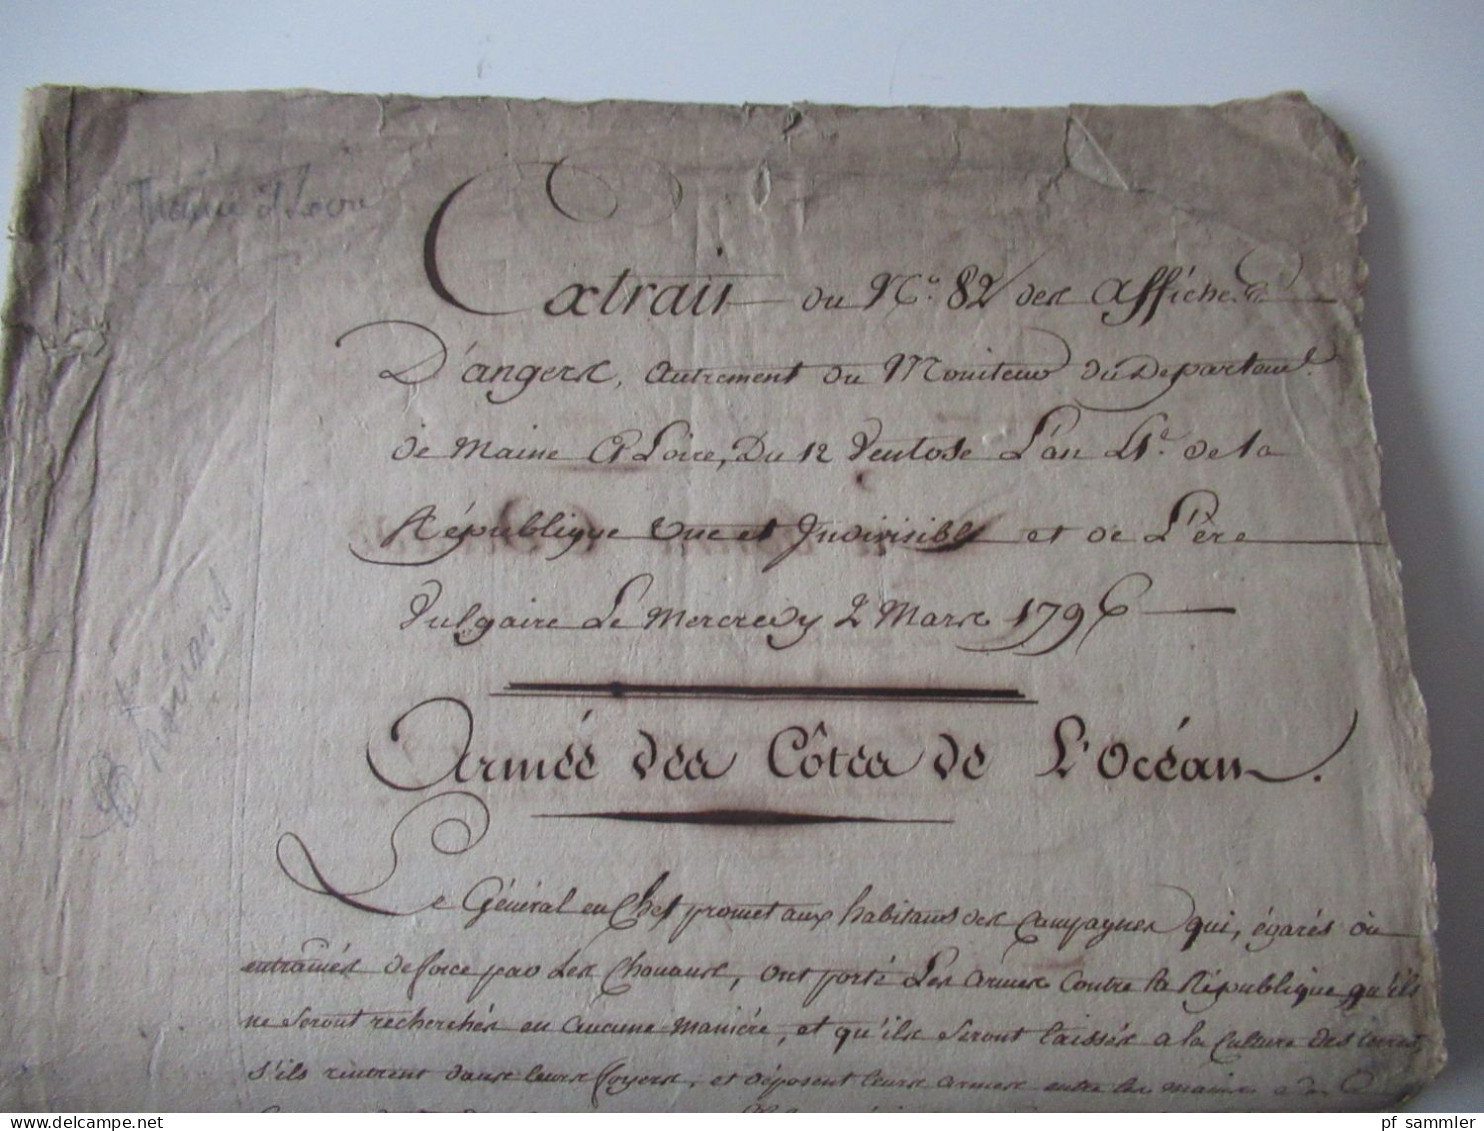 Maine et Loire
Extrait du N.° 82 des affiches
D'angers, autrement du Moniteur du Departem.t
de Maine et Loire, Du 12 Ventose L'an 4.e de la
République une et Indivisible et de L'ère
Vulgaire Le Mercredy 2 Mars 1796
Chouans
Armée des Côtes de L'Océan.
Le Général en Chef promet aux habitans des Campagnes qui, égarés ou
entrainés de force par Les Chouans, ont porté Les armes Contre la République qu'ils
ne seront recherchés en aucune manière, et qu'ils seront laissés a la Culture des terres,
s'ils rentrent dans leurs foyers, et déposent leurs armes entre les mains
pf sammler